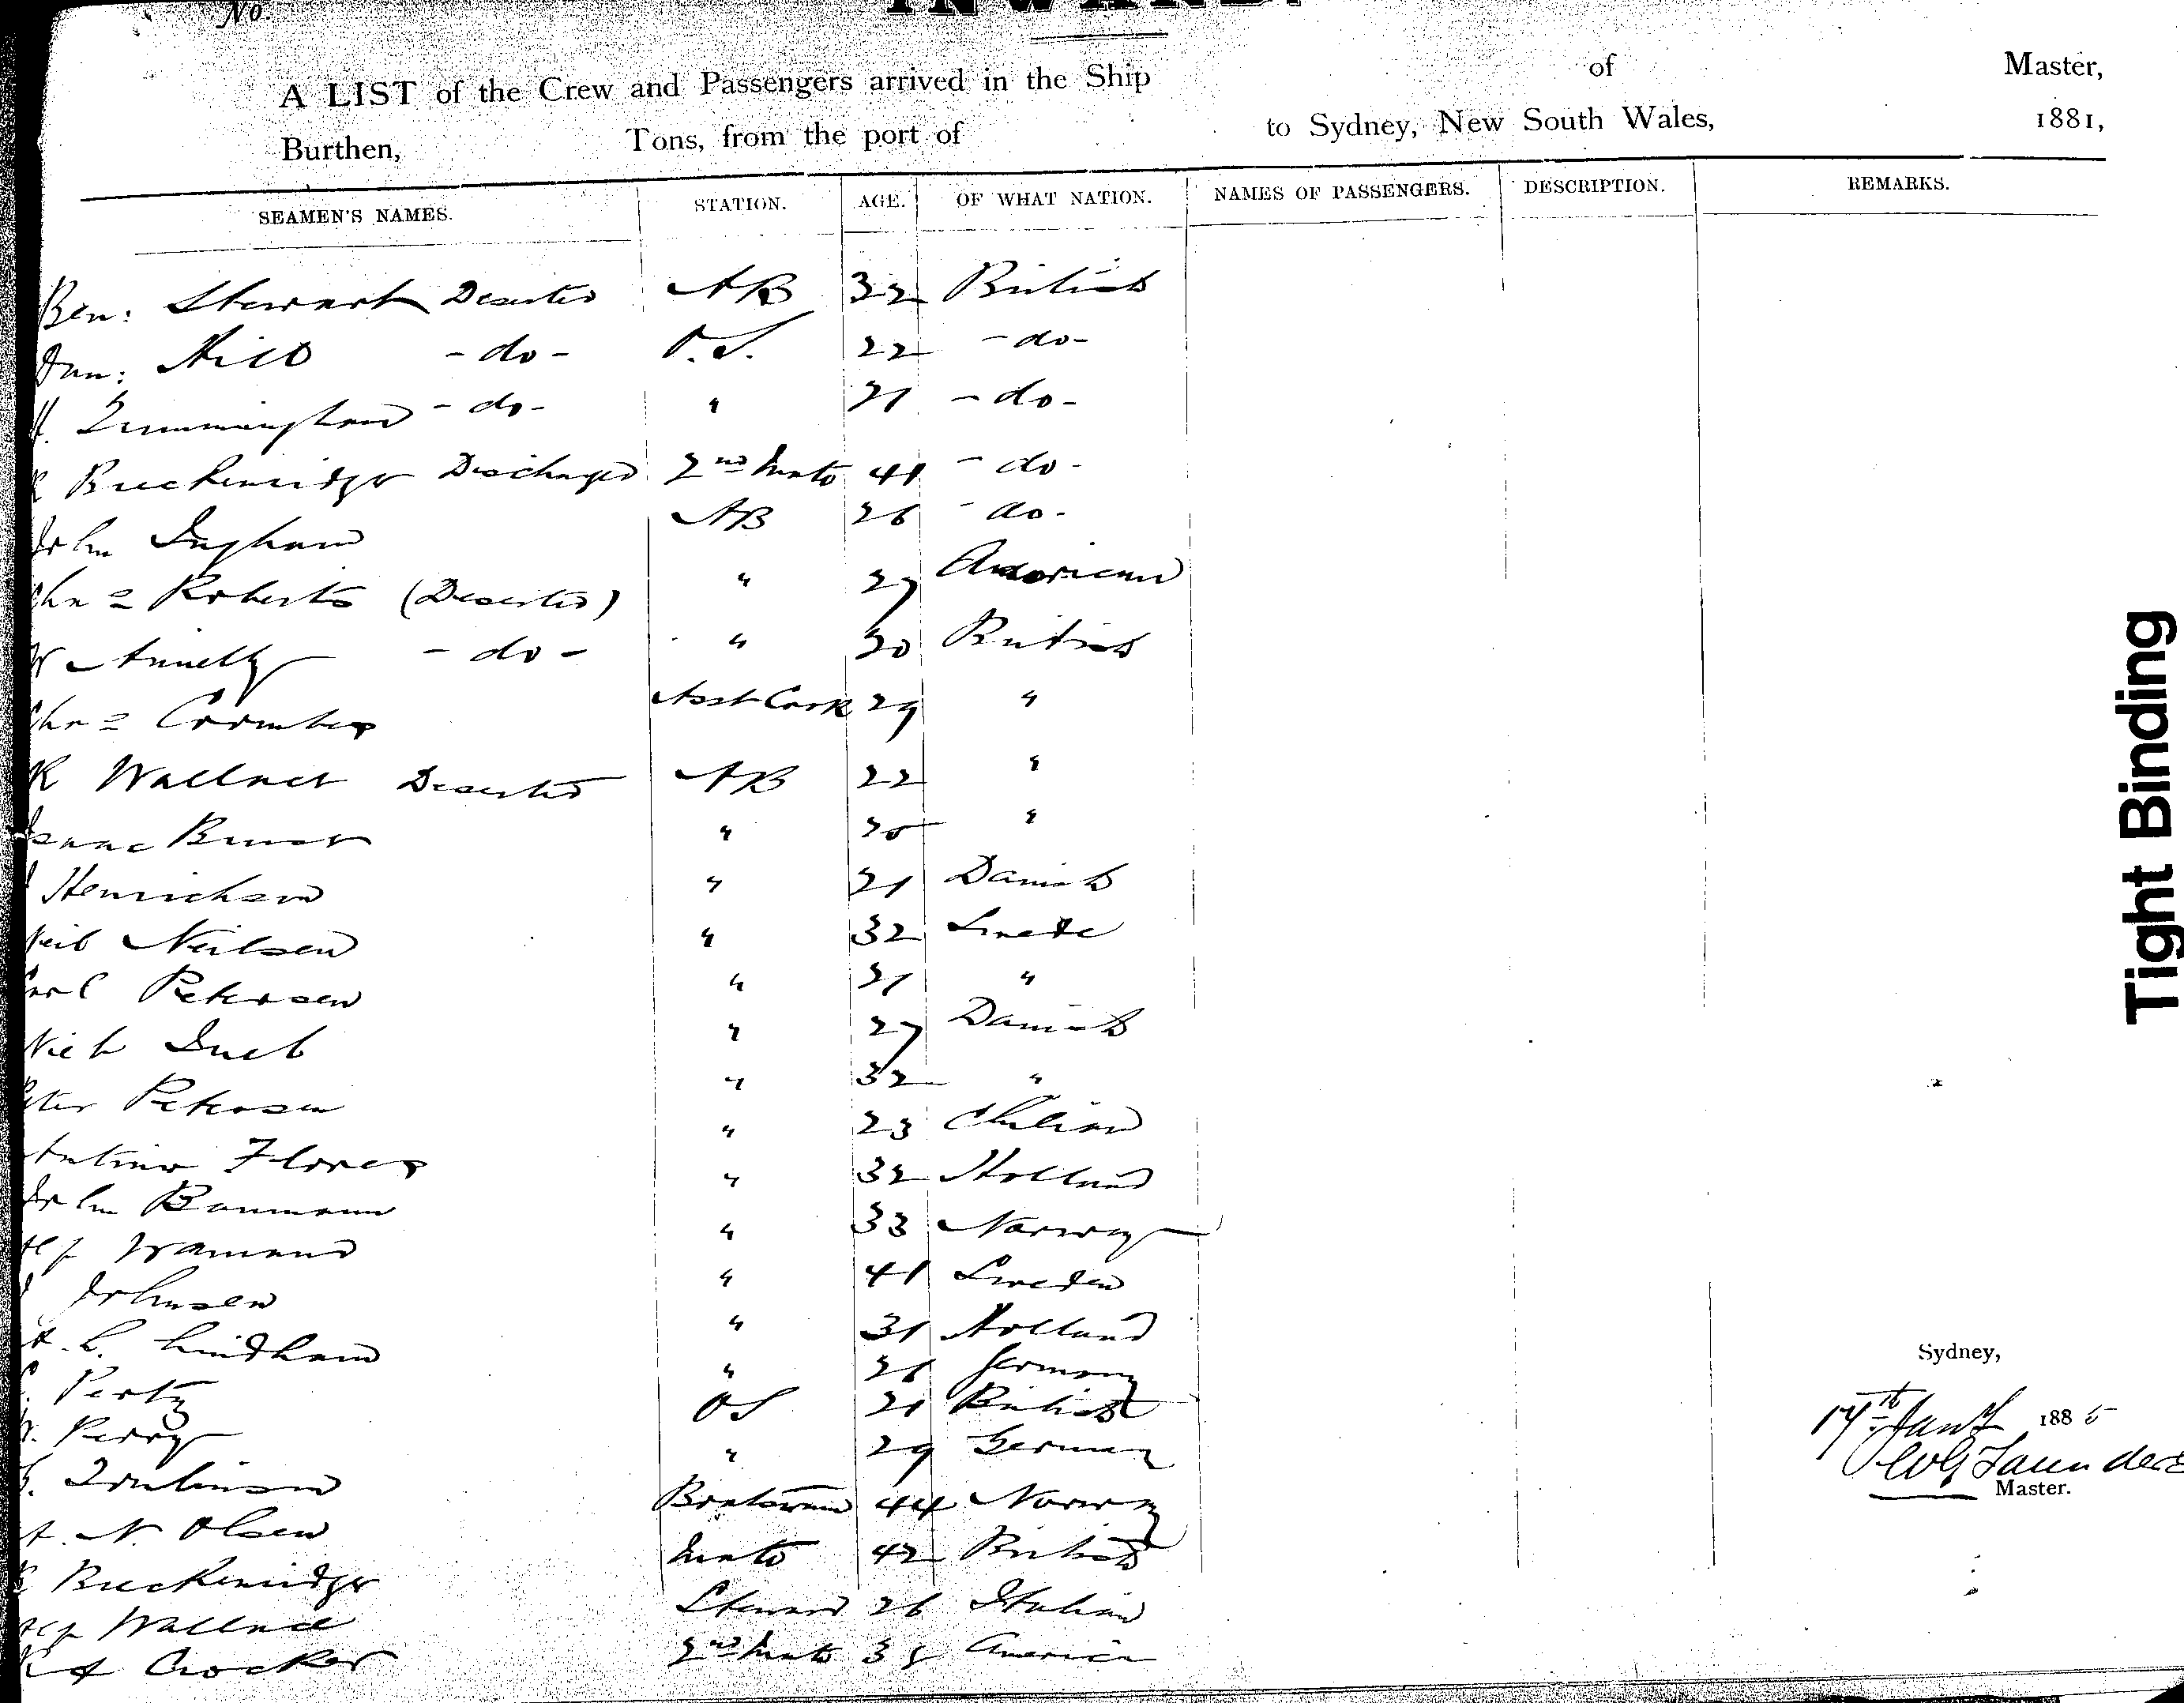 No.
INWARD.
A LIST of the Crew and Passengers arrived in the Ship of Master,
Burthen, Tons, from the port of to Sydney, New South Wales, 1881,
SEAMEN'S NAMES. STATION. AGE. OF WHAT NATION. NAMES OF PASSENGERS. DESCRIPTION. REMARKS.
Ben: Stewart Deserted AB 32 British
Hill - do - O.S. 22 - do -
- do - " 21 - do -
Breckenridge Discharged 2nd Mate 41 - do -
John Ingham AB 26 - do -
Roberts (Deserted) " 27 American
- do - " 30 British
Coombes Asst Cook 29 "
R Wallace Deserted AB 22 "
Isaac "  "
Henrichsen " 21 Danish
Neil Neilsen " 32 Swede
Carl Petersen " 21 "
" 27 Danish
Peter Petersen " 32 "
Antino Flores " 23 Chilian
John Baumann " 32 Holland
" 33 Norway
Johnsen " 41 Sweden
A. L. Lindham " 31 Holland
Perty " Germany
W. Perry OS 21 British
Tomlinson " 29 German
A. N. Olsen Boatswain 44 Norway
Breckenridge Mate 42 British
Wallace Steward 26 Italian
Crocker 2nd Mate America
Tight Binding
Sydney,
17th Jany 1885
Saunders
Master.